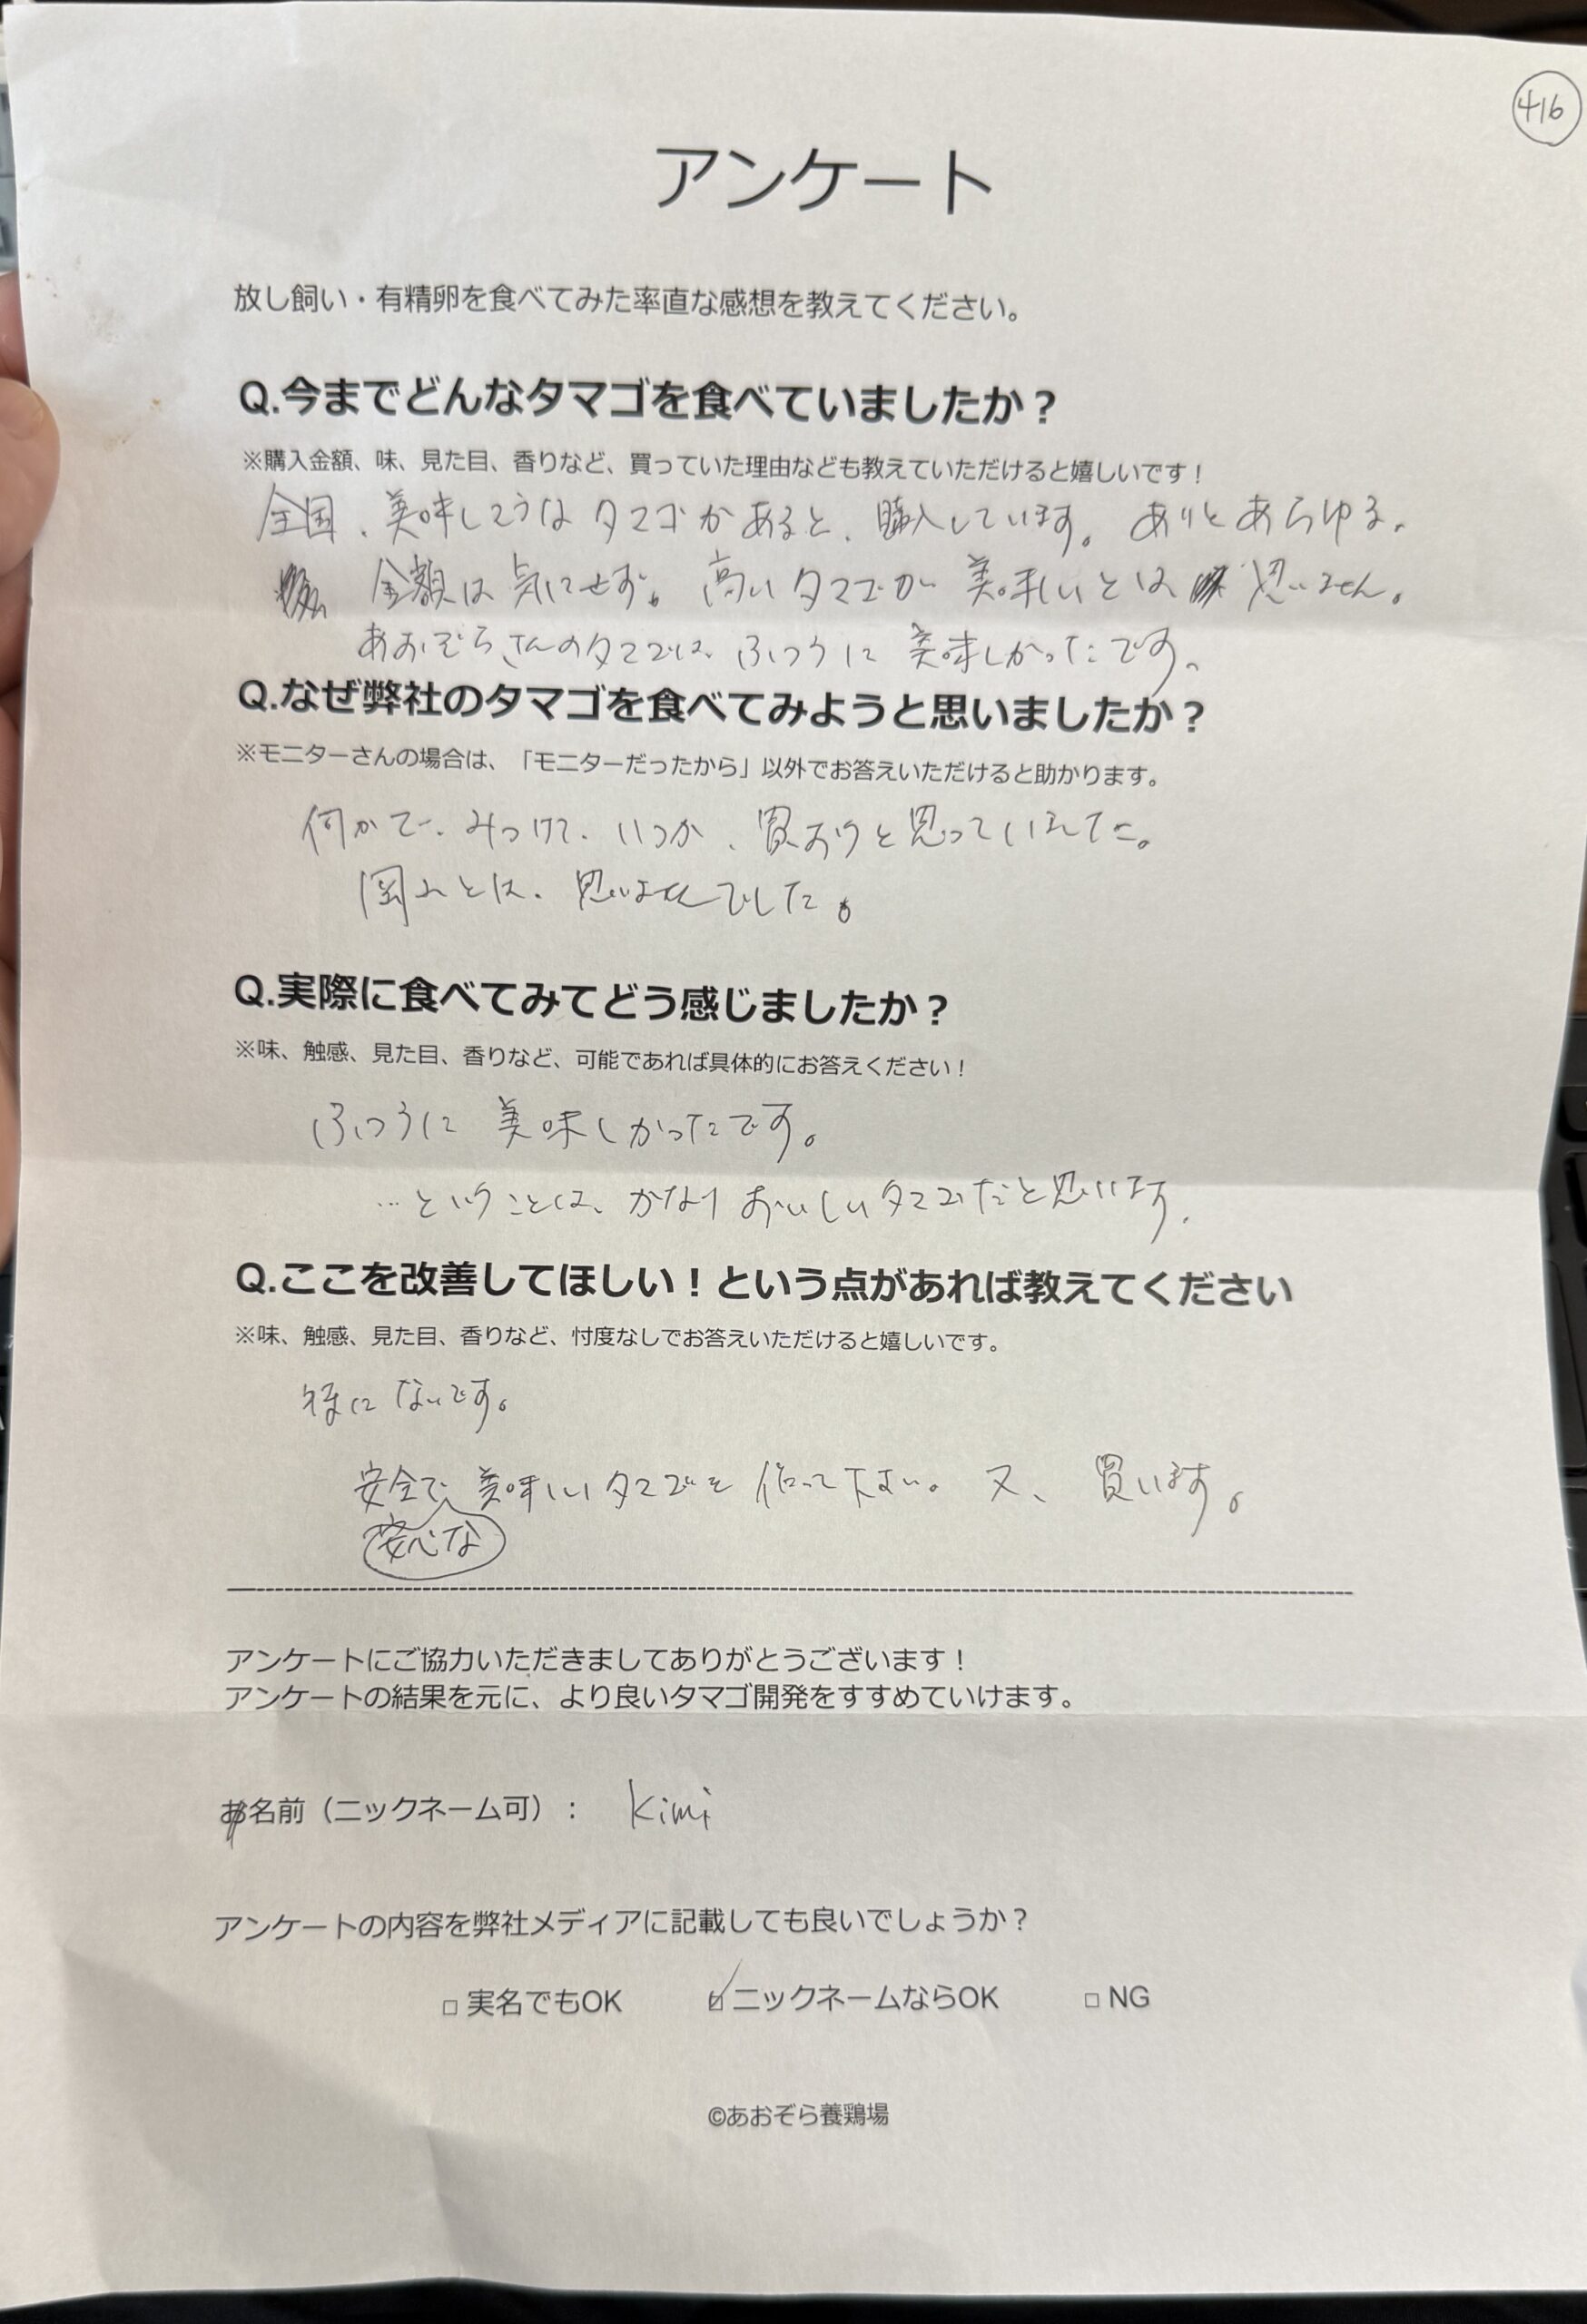 416
アンケート
放し飼い・有精卵を食べてみた率直な感想を教えてください。
Q.今までどんなタマゴを食べていましたか？
※購入金額、味、見た目、香りなど、買っていた理由なども教えていただけると嬉しいです！
全国、美味しそうなタマゴがあると、購入しています。ありとあらゆる。
金額は気にせず。高いタマゴが美味しいとは思いません。
あおぞらさんのタマゴは、ふつうに美味しかったです。
Q.なぜ弊社のタマゴを食べてみようと思いましたか？
※モニターさんの場合は、「モニターだったから」以外でお答えいただけると助かります。
何かで、みつけて、いつか、買おうと思っていました。
岡山とは、思いませんでした。
Q.実際に食べてみてどう感じましたか？
※味、触感、見た目、香りなど、可能であれば具体的にお答えください！
ふつうに美味しかったです。
…ということは、かなりおいしいタマゴだと思います。
Q.ここを改善してほしい！という点があれば教えてください
※味、触感、見た目、香りなど、忖度なしでお答えいただけると嬉しいです。
特にないです。
安全で、美味しいタマゴを作って下さい。又、買います。
安心な
アンケートにご協力いただきましてありがとうございます！
アンケートの結果を元に、より良いタマゴ開発をすすめていけます。
お名前（ニックネーム可）： kimi
アンケートの内容を弊社メディアに記載しても良いでしょうか？
□ 実名でもOK ☑ ニックネームならOK □ NG
©あおぞら養鶏場